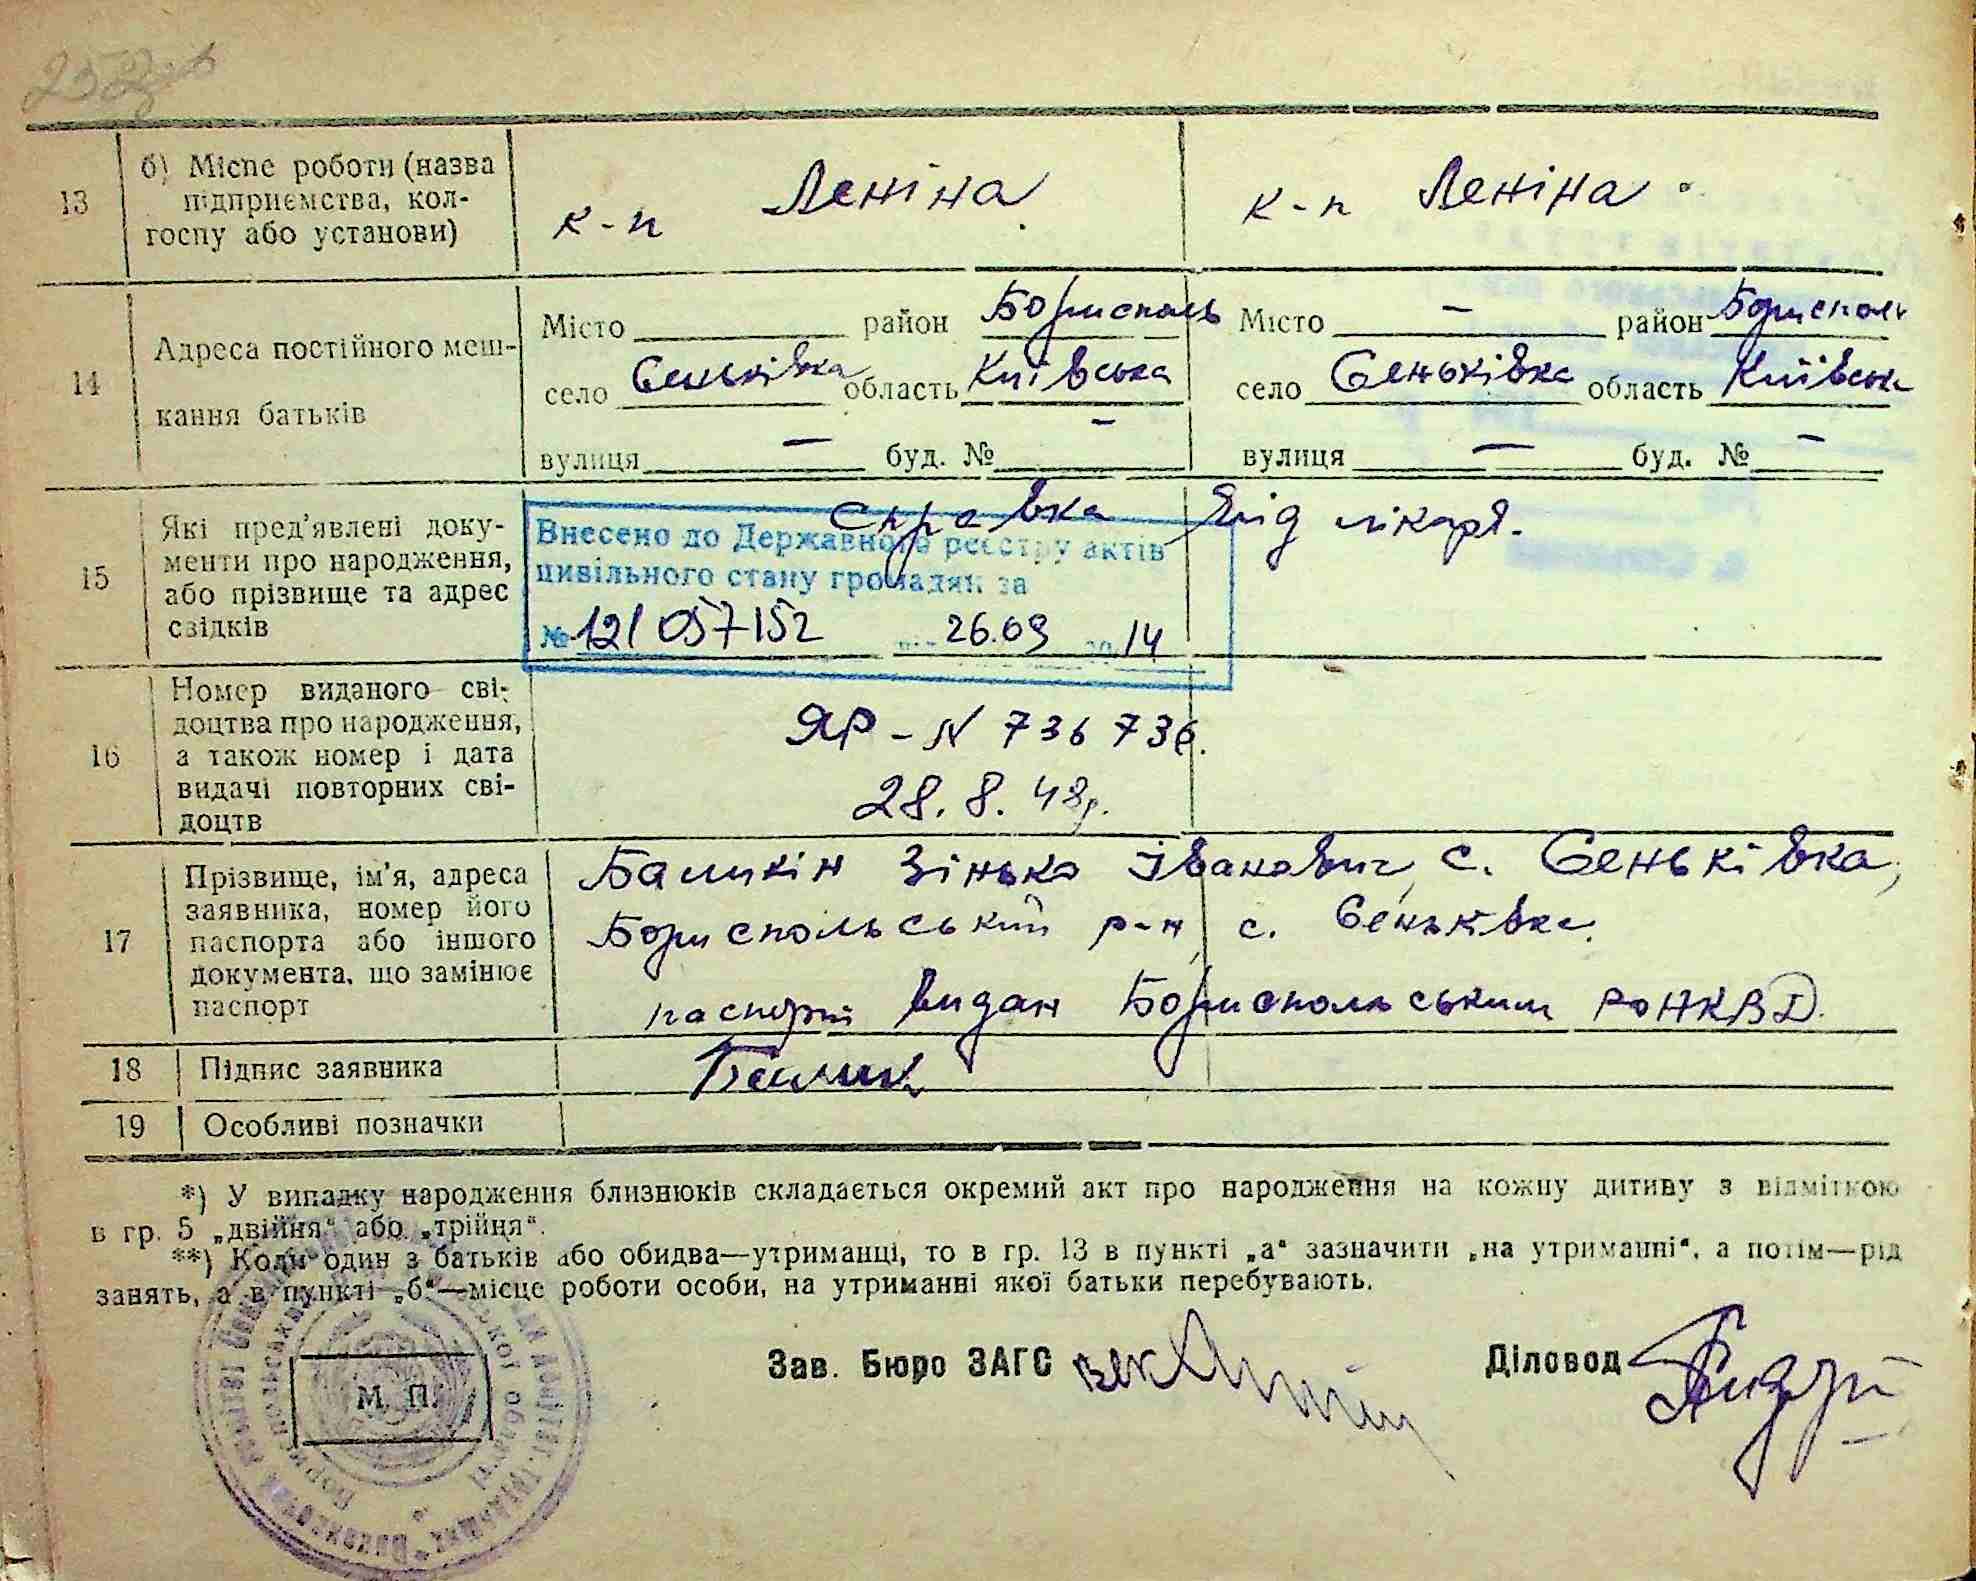 252
13 б) Місце роботи (назва
підприємства, кол-
госпу або установи)
к-п Леніна к-п Леніна
14 Адреса постійного меш-
кання батьків
Місто район Бориспаль Місто — район Бориспаль
село Сеньківка область Київська село Сеньківка область Київськ
вулиця — буд. № — вулиця — буд. № —
15 Які пред'явлені доку-
менти про народження,
або прізвище та адрес
свідків
Справка від лікаря.
Внесено до Державного реєстру актів
цивільного стану громадян за
№ 121 057152 26.09 20 14
16 Номер виданого сві-
доцтва про народження,
а також номер і дата
видачі повторних сві-
доцтв
ЯР - N 736 736.
28. 8. 48р.
17 Прізвище, ім'я, адреса
заявника, номер його
паспорта або іншого
документа, що замінює
паспорт
Баликін Зінько Іванович, с. Сеньківка,
Бориспольський р-н, с. Сеньківка.
паспорт видан Бориспольським РОНКВД.
18 Підпис заявника
19 Особливі позначки
*) У випадку народження близнюків складається окремий акт про народження на кожну дитину з відміткою
в гр. 5 „двійня" або „трійця".
**) Коли один з батьків або обидва—утриманці, то в гр. 13 в пункті „а" зазначити „на утриманні", а потім—рід
занять, а в пункті „б"—місце роботи особи, на утриманні якої батьки перебувають.
Зав. Бюро ЗАГС Діловод
М. П.